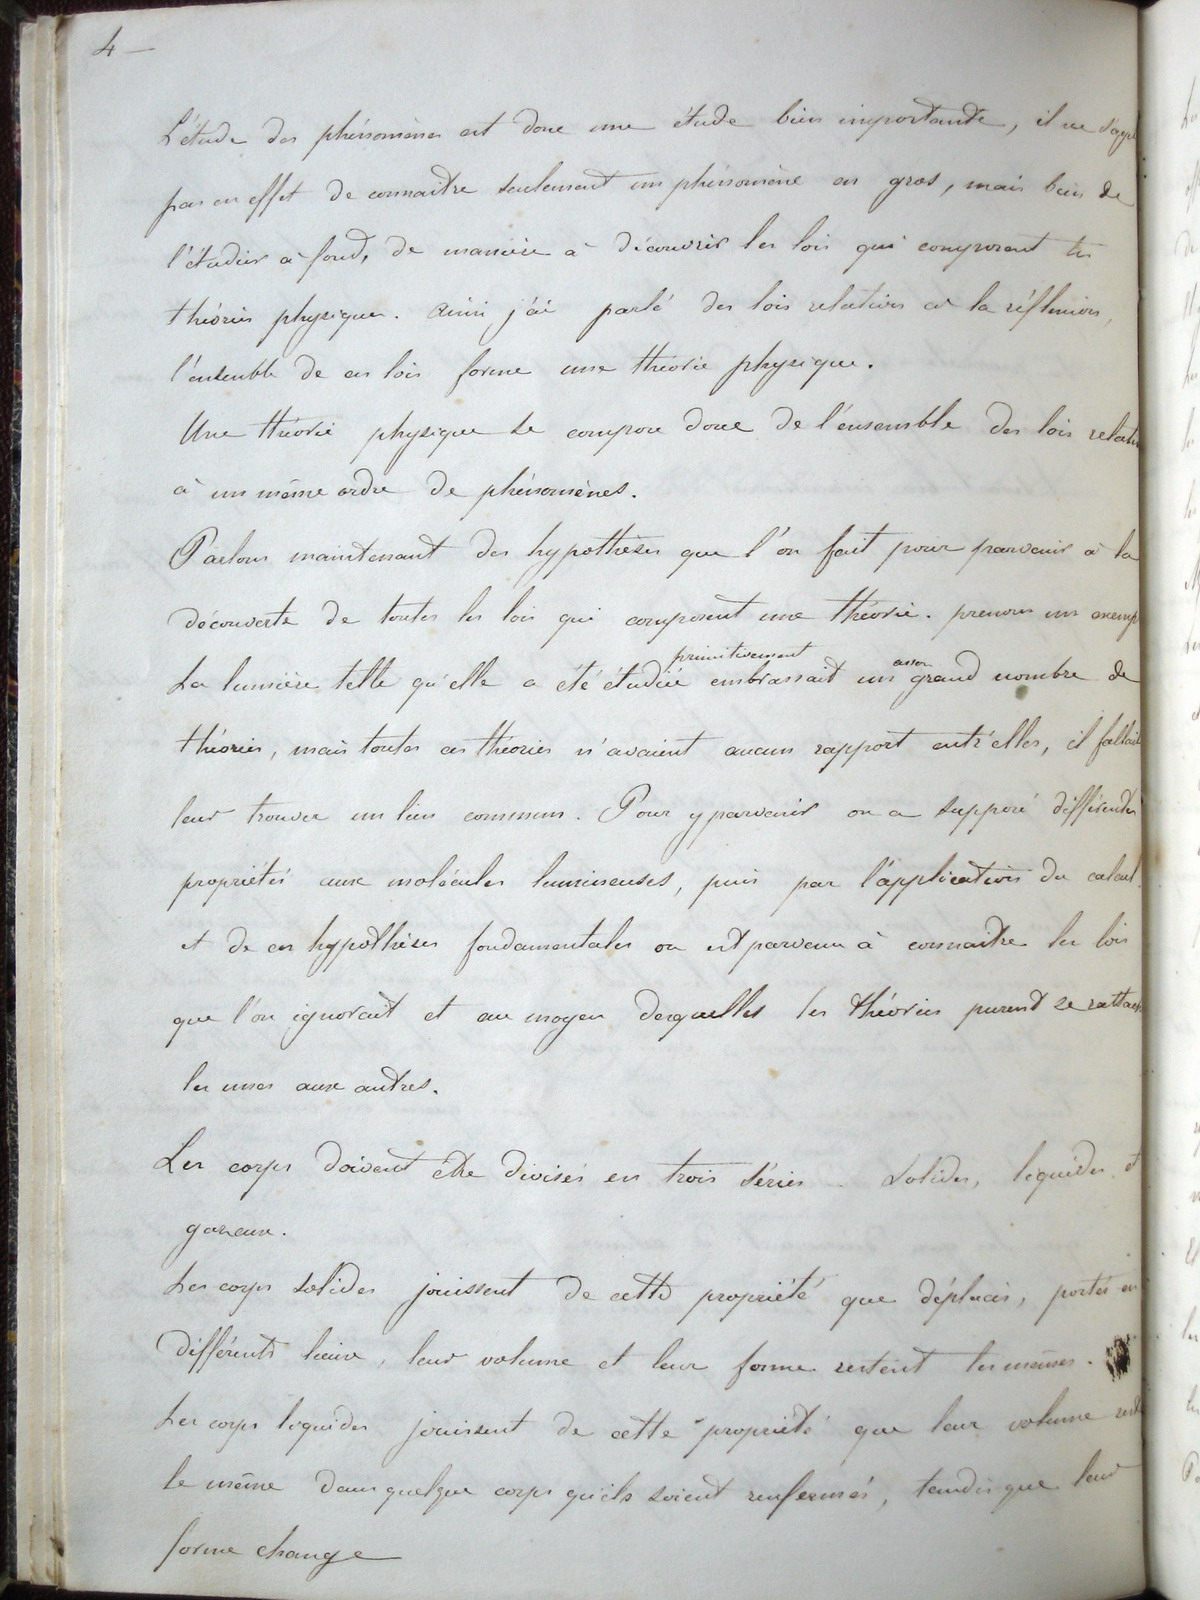 4 —
L'étude des phénomènes est donc une étude bien importante, il ne s'agit
pas en effet de connaitre seulement un phénomène en gros, mais bien de
l'étudier à fond, de manière à découvrir les lois qui composent les
théories physiques. Ainsi j'ai parlé des lois relatives à la réflexion,
l'ensemble de ces lois forme une théorie physique.
Une théorie physique se compose donc de l'ensemble des lois relativ
à un même ordre de phénomènes.
Parlons maintenant des hypothèses que l'on fait pour parvenir à la
découverte de toutes les lois qui composent une théorie. prenons un exemp
primitivement assez
La lumière telle qu'elle a été étudiée embrassait un grand nombre de
théories, mais toutes ces théories n'avaient aucun rapport entr'elles, il fallait
leur trouver un lien commun. Pour y parvenir on a supposé différentes
propriétés aux molécules lumineuses, puis par l'application du calcul
et de ces hypothèses fondamentales on est parvenu à connaitre les lois
que l'on ignorait et au moyen desquelles les théories purent se rattach
les unes aux autres.
Les corps doivent être divisés en trois séries solides, liquides et
gazeux.
Les corps solides jouissent de cette propriété que déplacés, portés en
différents lieux, leur volume et leur forme restent les mêmes.
Les corps liquides jouissent de cette propriété que leur volume reste
le même dans quelque corps qu'ils soient renfermés, tandis que leur
forme change